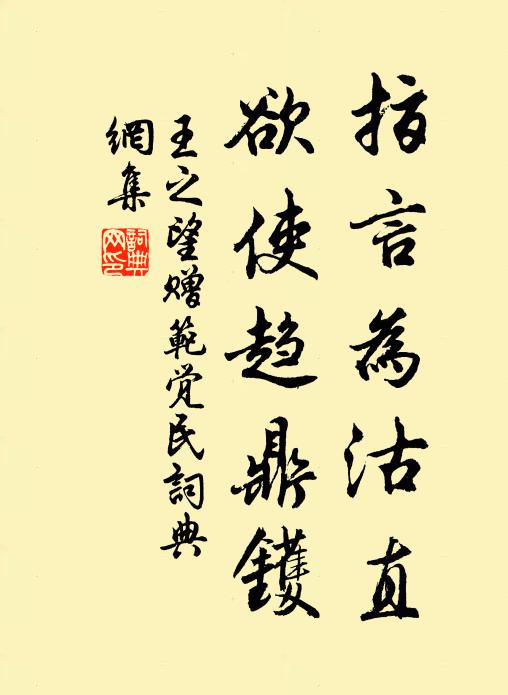 指言為沽直
欲使趋鼎鑊
王之望赠範觉民詞典
網集
詞典
网印